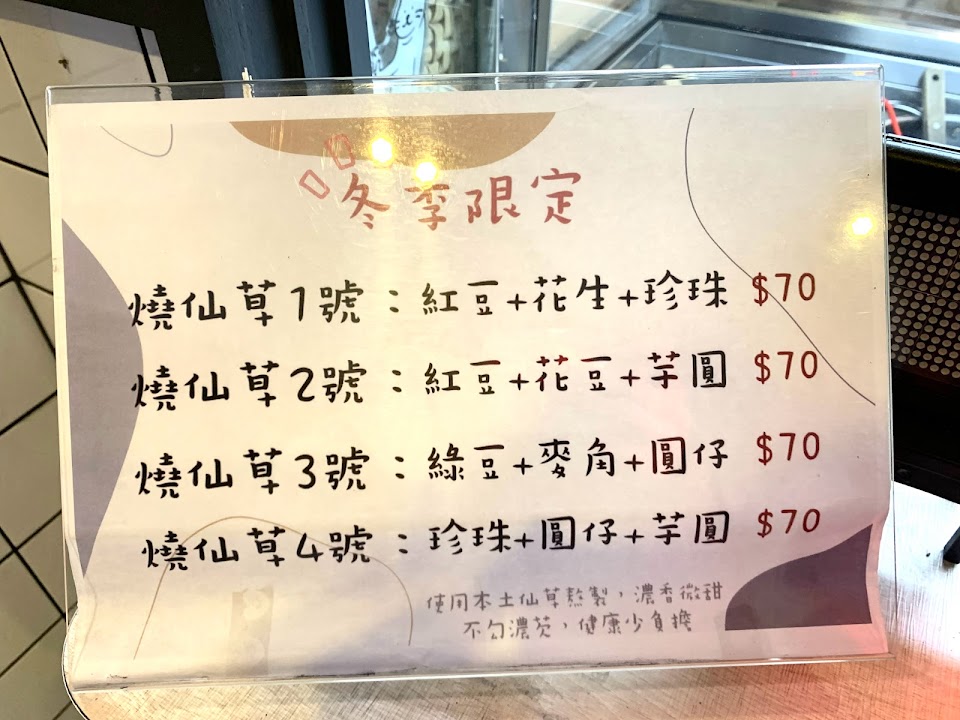 冬季限定
燒仙草1號：紅豆+花生+珍珠 $70
燒仙草2號：紅豆+花豆+芋圓 $70
燒仙草3號：綠豆+麥角+圓仔 $70
燒仙草4號：珍珠+圓仔+芋圓 $70
使用本土仙草熬製，濃香微甜
不勾濃芡，健康少負擔